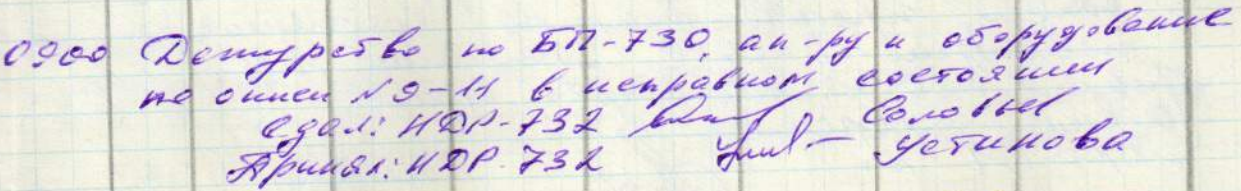 0900 Дежурство по БП-730, ап-ру и оборудование
по описи №9-11 в исправном состоянии
сдал: НДР-732 Соловьев
Принял: НДР-732 Устинова